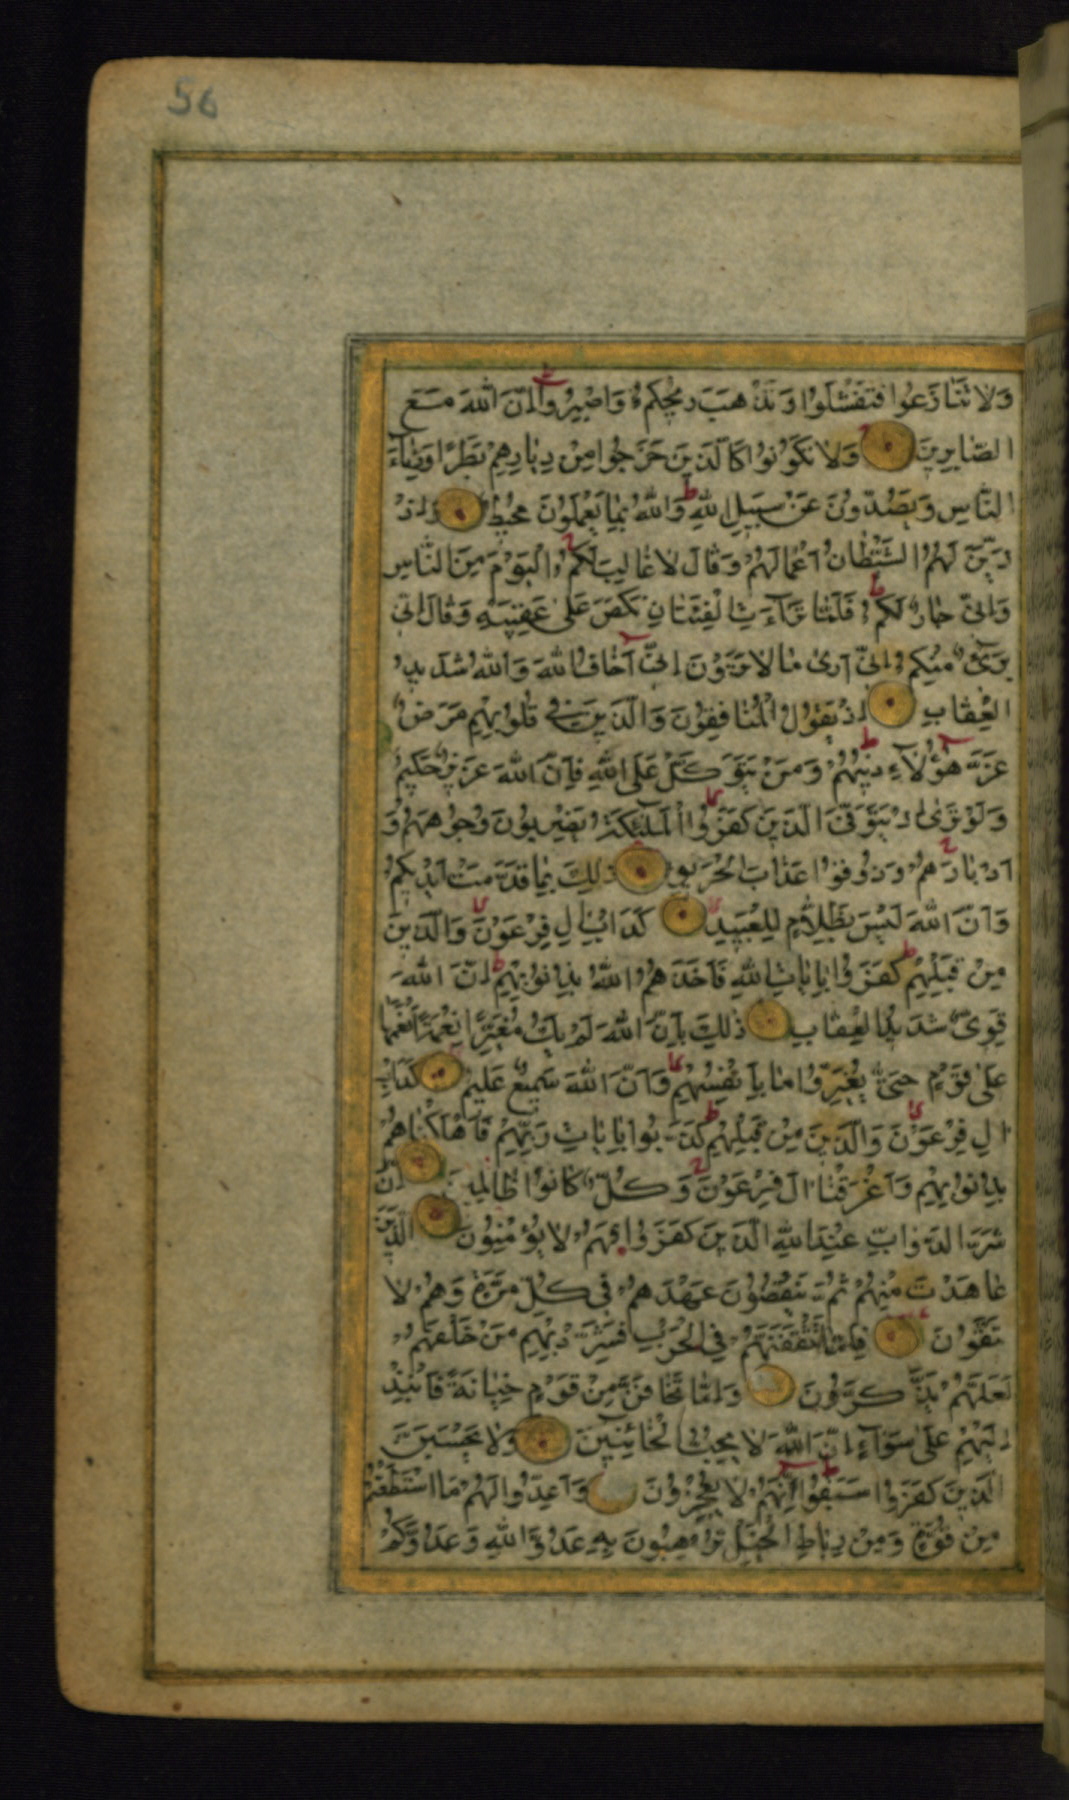 56
وَلَا تَنَازَعُوا فَتَفْشَلُوا وَتَذْهَبَ رِيحُكُمْ وَاصْبِرُوا اِنَّ اللّٰهَ مَعَ
الصَّابِرِينَ وَلَا تَكُونُوا كَالَّذِينَ خَرَجُوا مِنْ دِيَارِهِمْ بَطَرًا وَرِئَاءَ
النَّاسِ وَيَصُدُّونَ عَنْ سَبِيلِ اللّٰهِ وَاللّٰهُ بِمَا يَعْمَلُونَ مُحِيطٌ وَاِذْ
زَيَّنَ لَهُمُ الشَّيْطَانُ اَعْمَالَهُمْ وَقَالَ لَا غَالِبَ لَكُمُ الْيَوْمَ مِنَ النَّاسِ
وَاِنِّي جَارٌ لَكُمْ فَلَمَّا تَرَاءَتِ الْفِئَتَانِ نَكَصَ عَلَى عَقِبَيْهِ وَقَالَ اِنِّي
بَرِيءٌ مِنْكُمْ اِنِّي اَرَى مَا لَا تَرَوْنَ اِنِّي اَخَافُ اللّٰهَ وَاللّٰهُ شَدِيدُ
الْعِقَابِ اِذْ يَقُولُ الْمُنَافِقُونَ وَالَّذِينَ فِي قُلُوبِهِمْ مَرَضٌ
غَرَّ هٰؤُلَاءِ دِينُهُمْ وَمَنْ يَتَوَكَّلْ عَلَى اللّٰهِ فَاِنَّ اللّٰهَ عَزِيزٌ حَكِيمٌ
وَلَوْ تَرَى اِذْ يَتَوَفَّى الَّذِينَ كَفَرُوا الْمَلٰئِكَةُ يَضْرِبُونَ وُجُوهَهُمْ وَ
اَدْبَارَهُمْ وَذُوقُوا عَذَابَ الْحَرِيقِ ذٰلِكَ بِمَا قَدَّمَتْ اَيْدِيكُمْ
وَاَنَّ اللّٰهَ لَيْسَ بِظَلَّامٍ لِلْعَبِيدِ كَدَاْبِ اٰلِ فِرْعَوْنَ وَالَّذِينَ
مِنْ قَبْلِهِمْ كَفَرُوا بِاٰيَاتِ اللّٰهِ فَاَخَذَهُمُ اللّٰهُ بِذُنُوبِهِمْ اِنَّ اللّٰهَ
قَوِيٌّ شَدِيدُ الْعِقَابِ ذٰلِكَ بِاَنَّ اللّٰهَ لَمْ يَكُ مُغَيِّرًا نِعْمَةً اَنْعَمَهَا
عَلَى قَوْمٍ حَتَّى يُغَيِّرُوا مَا بِاَنْفُسِهِمْ وَاَنَّ اللّٰهَ سَمِيعٌ عَلِيمٌ كَدَاْبِ
اٰلِ فِرْعَوْنَ وَالَّذِينَ مِنْ قَبْلِهِمْ كَذَّبُوا بِاٰيَاتِ رَبِّهِمْ فَاَهْلَكْنَاهُمْ
بِذُنُوبِهِمْ وَاَغْرَقْنَا اٰلَ فِرْعَوْنَ وَكُلٌّ كَانُوا ظَالِمِينَ اِنَّ
شَرَّ الدَّوَابِّ عِنْدَ اللّٰهِ الَّذِينَ كَفَرُوا فَهُمْ لَا يُؤْمِنُونَ الَّذِينَ
عَاهَدْتَ مِنْهُمْ ثُمَّ يَنْقُضُونَ عَهْدَهُمْ فِي كُلِّ مَرَّةٍ وَهُمْ لَا
يَتَّقُونَ فَاِمَّا تَثْقَفَنَّهُمْ فِي الْحَرْبِ فَشَرِّدْ بِهِمْ مَنْ خَلْفَهُمْ
لَعَلَّهُمْ يَذَّكَّرُونَ وَاِمَّا تَخَافَنَّ مِنْ قَوْمٍ خِيَانَةً فَانْبِذْ
اِلَيْهِمْ عَلَى سَوَاءٍ اِنَّ اللّٰهَ لَا يُحِبُّ الْخَائِنِينَ وَلَا يَحْسَبَنَّ
الَّذِينَ كَفَرُوا سَبَقُوا اِنَّهُمْ لَا يُعْجِزُونَ وَاَعِدُّوا لَهُمْ مَا اسْتَطَعْتُمْ
مِنْ قُوَّةٍ وَمِنْ رِبَاطِ الْخَيْلِ تُرْهِبُونَ بِهِ عَدُوَّ اللّٰهِ وَعَدُوَّكُمْ